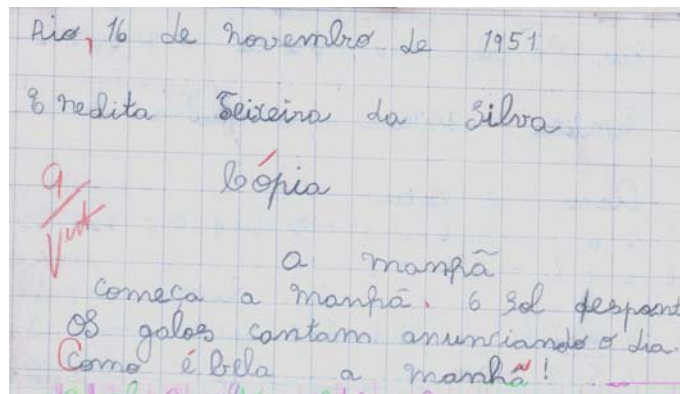 Rio, 16 de novembro de 1951
Enedita Teixeira da Silva
Cópia
9
Vint
a manhã
começa a manhã. O sol despont
Os galos cantam anunciando o dia.
Como é bela a manhã!